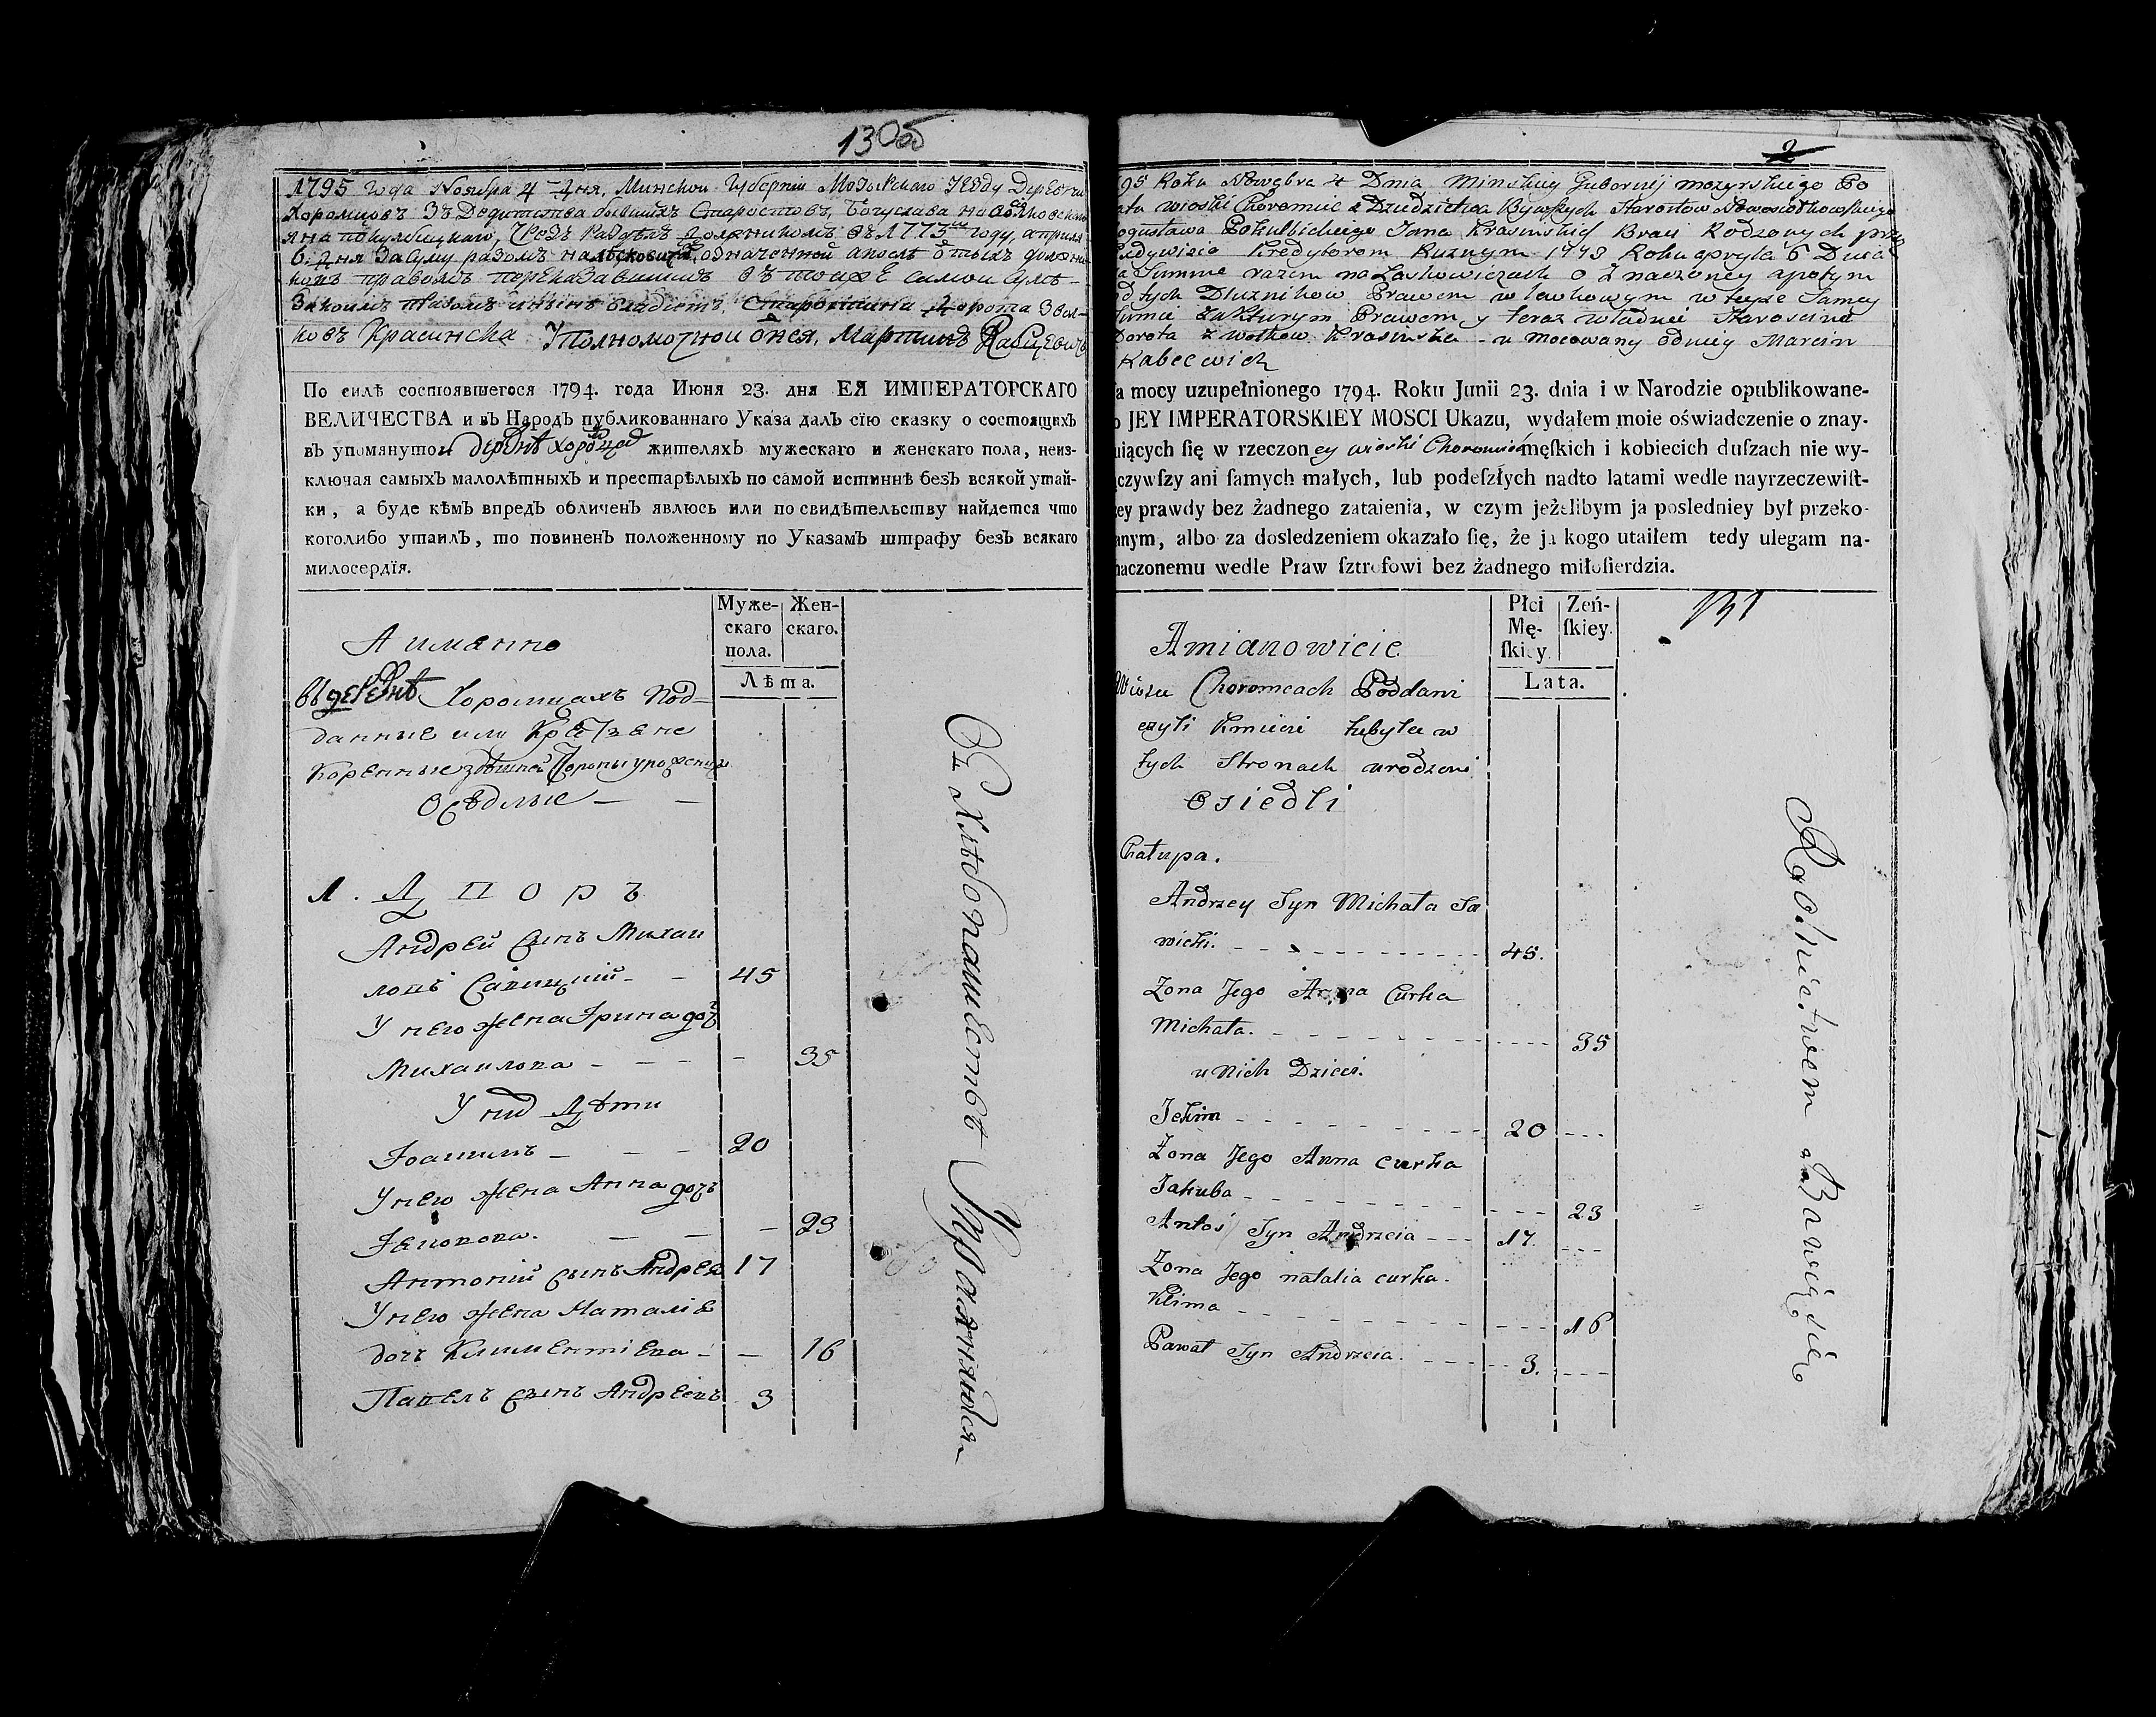 130об
1795 года Ноября 4 дня, Минской Губернии Мозырскаго Уезду Деревни
Хоромцовъ Зъ Дедитства бывшихъ Старостовъ, Богуслава
Яна покулбицкаго, Чрезъ Раздѣлъ должникомъ въ 1773 году, априля
6. дня За суму разомъ на означенной апослѣ отъ тыхъ
правомъ въ той же самой сумѣ
Закоимъ правомъ инынѣ владѣетъ. Старостина Дорота Звол-
ковъ Красинска Уполномочной онея, Мартинъ Кабцевичъ
По силѣ состоявшегося 1794. года Июня 23. дня ЕЯ ИМПЕРАТОРСКАГО
ВЕЛИЧЕСТВА и въ Народъ публикованнаго Указа далъ сїю сказку о состоящихъ
въ упомянутой деревнѣ хоромцах жителяхъ мужескаго и женскаго пола, неиз-
ключая самыхъ малолѣтныхъ и престарѣлыхъ по самой истиннѣ безъ всякой утай-
ки, а буде кѣмъ впредъ обличенъ явлюсь или по свидѣтельству найдется что
коголибо утаилъ, то повиненъ положенному по Указамъ штрафу безъ всякаго
милосердїя.
Муже-
скаго
пола.
Жен-
скаго.
Лѣта.
А имянно
въ деревнѣ Хоромцахъ Под-
данные или Крестьяне
Коренные здѣшней Стороны уроженцы
Осѣдлые
1. Дворъ
Андрей сынъ Михаи
ловъ Савицкий 45
У него жена Ирина дочь
Михаилова 35
У них Дѣти
Іоакимъ 20
У него жена Анна дочъ
Яковова. 23
Антоній сынъ Андрея 17
У него жена Наталія
дочь Климентіева 16
Павелъ сынъ Андреевъ 3
Хлѣбопашествѣ Упражняются
2
95 Roku Nowębra 4 Dnia Minskiey Gubernij mozyrskiego Po
atu wioski Choromic z Dziedzictwa Bywszych Starostow Nowosiołkowskiego
ogusława Pokulbickiego Jana Krasinskich Braci Rodzonych przez
Kredytorom Ruznym 1773 Roku apryla 6 Dnia
a Summe razem na Laskowiczach o znaczoney apotym
od tych Dłuznikow Prawem w teyze Samey
Sumie zaKturym Prawem y teraz władnei Staroscina
Dorota z Wołkow Krasinska - u mocowany odniey Marcin
Kabcewich
a mocy uzupełnionego 1794. Roku Junii 23. dnia i w Narodzie opublikowane-
o JEY IMPERATORSKIEY MOSCI Ukazu, wydałem moie oświadczenie o znay-
uiących ſię w rzeczoney wioski Choromicá męſkich i kobiecich duſzach nie wy-
ączywſzy ani ſamych małych, lub podeſzłych nadto latami wedle nayrzeczewiſt-
zey prawdy bez żadnego zataienia, w czym jeżelibym ja posledniey był przeko-
anym, albo za dosledzeniem okazało ſię, że ja kogo utaiłem tedy ulegam na-
naczonemu wedle Praw ſztrofowi bez żadnego miłoſierdzia.
Płci
Mę-
ſkiey.
Zeń-
ſkiey.
Lata.
131
Amianowicie
Wiosce Choromcach Poddani
czyli Kmieci tubylce w
tych Stronach urodzeni
Osiedli
Chałupa.
Andrzey Syn Michała Sa
wicki. 45.
Zona Jego Curka
Michała. 35
u Nich Dzieci.
Jekim 20
Zona Jego Anna curka
Jakuba 23
Antoś Syn Andrzeia 17.
Zona Jego natalia curka.
Klima 16
Paweł Syn Andrzeia. 3.
Rolnictwem Bawią się